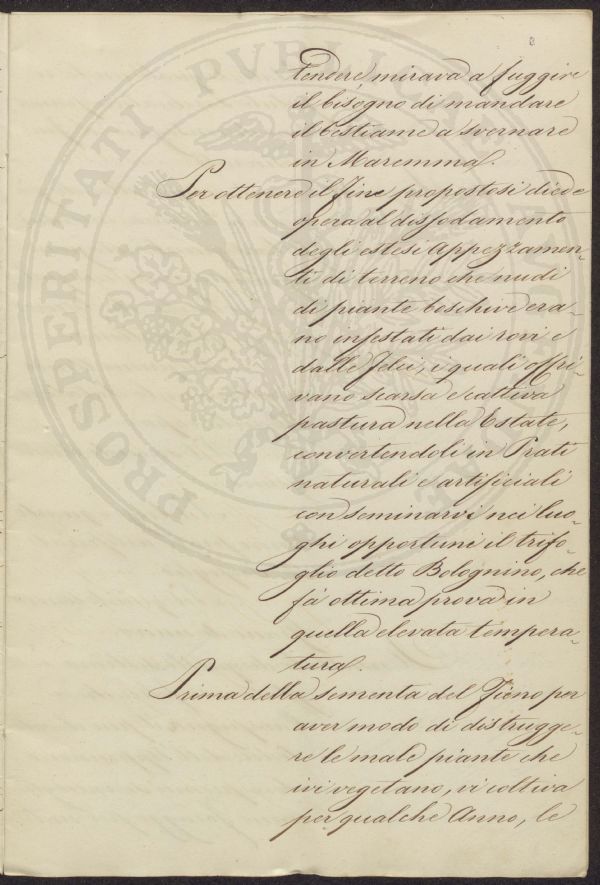 tendere mirava a fuggire
il bisogno di mandare
il bestiame a svernare
in Maremma.
Per ottenere il fine propostosi diede
opera al dissodamento
degli estesi Appezzamen-
ti di terreno che nudi
di piante boschive era-
no infestati dai rovi e
dalle felci, i quali offri-
vano scarsa e cattiva
pastura nella Estate,
convertendoli in Prati
naturali e artificiali
con seminarvi nei luo-
ghi opportuni il trifo-
glio detto Bolognino, che
fà ottima prova in
quella elevata tempera-
tura.
Prima della sementa del Fieno per
aver modo di distrugge-
re le male piante che
ivi vegetano, vi coltiva
per qualche Anno, le
PROSPERITATI PVBLICAE